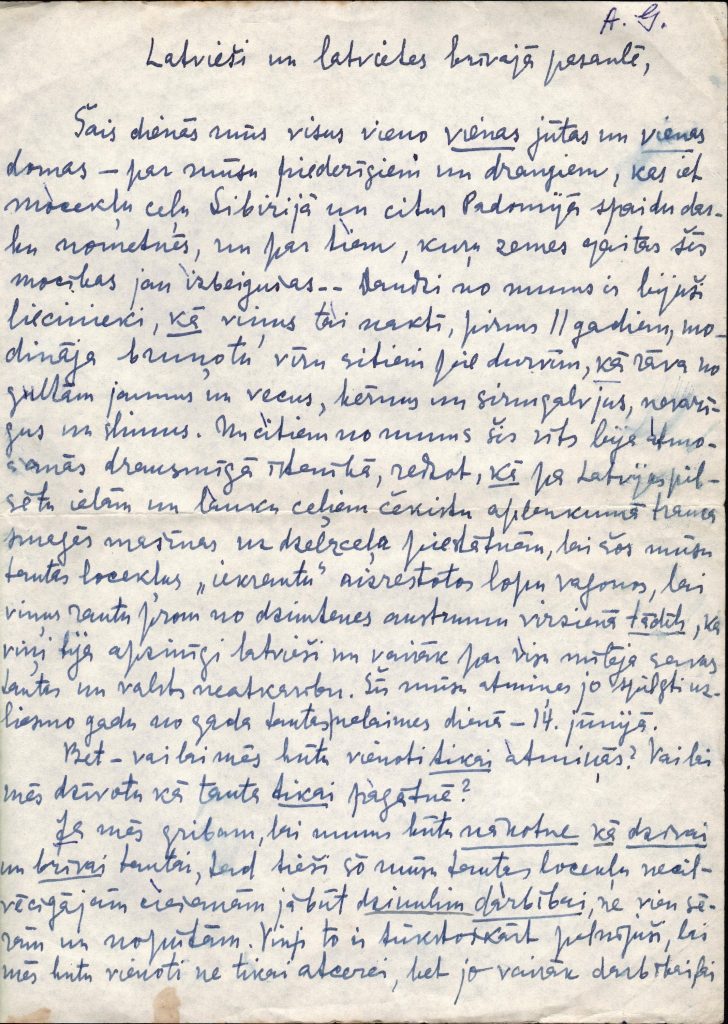 A. G.
Latvieši un latvietes brīvajā pasaulē,
Šais dienās mūs visus vieno vienas jūtas un vienas
domas – par mūsu piederīgiem un draugiem, kas iet
mocekļu ceļu Sibirijā un citur Padomijā spaidu dar-
bu nometnēs, un par tiem, kuŗu zemes gaitas šīs
mocības jau izbeigušas -- Daudzi no mums ir bijuši
liecinieki, kā viņus tai naktī, pirms 11 gadiem, mo-
dināja bruņotu vīru sitieni pie durvīm, kā rāva no
gultām jaunus un vecus, bērnus un sirmgalvjus, nevarī-
gus un slimus. Un citiem no mums šis rīts bija atmo-
šanās drausmīgā īstenībā, redzot, kā pa Latvijas pil-
sētu ielām un lauku ceļiem čekistu aplenkumā trauca
smagās mašīnas uz dzelzceļa piestātnēm, lai šos mūsu
tautas locekļus „iekrautu" aizrestotos lopu vagonos, lai
viņus rautu prom no dzimtenes austrumu virzienā tādēļ, ka
viņi bija apzinīgi latvieši un vairāk par visu mīlēja savas
tautas un valsts neatkarību. Šīs mūsu atmiņas jo spilgti uz-
liesmo gadu no gada tautas nelaimes dienā – 14. jūnijā.
Bet – vai lai mēs būtu vienoti tikai atmiņās? Vai lai
mēs dzīvotu kā tauta tikai pagātnē?
Ja mēs gribam, lai mums būtu nākotne kā dzīvai
un brīvai tautai, tad tieši šo mūsu tautas locekļu necil-
vēcīgajām ciešanām jābūt dzinulim darbībai, ne vien sē-
rām un nopūtām. Viņi to ir tūkstoškārt pelnījuši, lai
mēs būtu vienoti ne tikai atcerei, bet jo vairāk darbībai